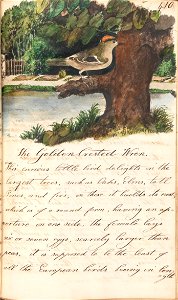 436.
The Golden Crested Wren.
This curious little bird delights in the
largest trees, such as Oaks, Elms, tall
Pines, and firs, in these it builds its nest,
which is of a round form, having an ap-
perture on one side, the female lays
six or seven eggs, scarcely larger than
peas, it is supposed to be the least of
all the European birds, being in len
gth